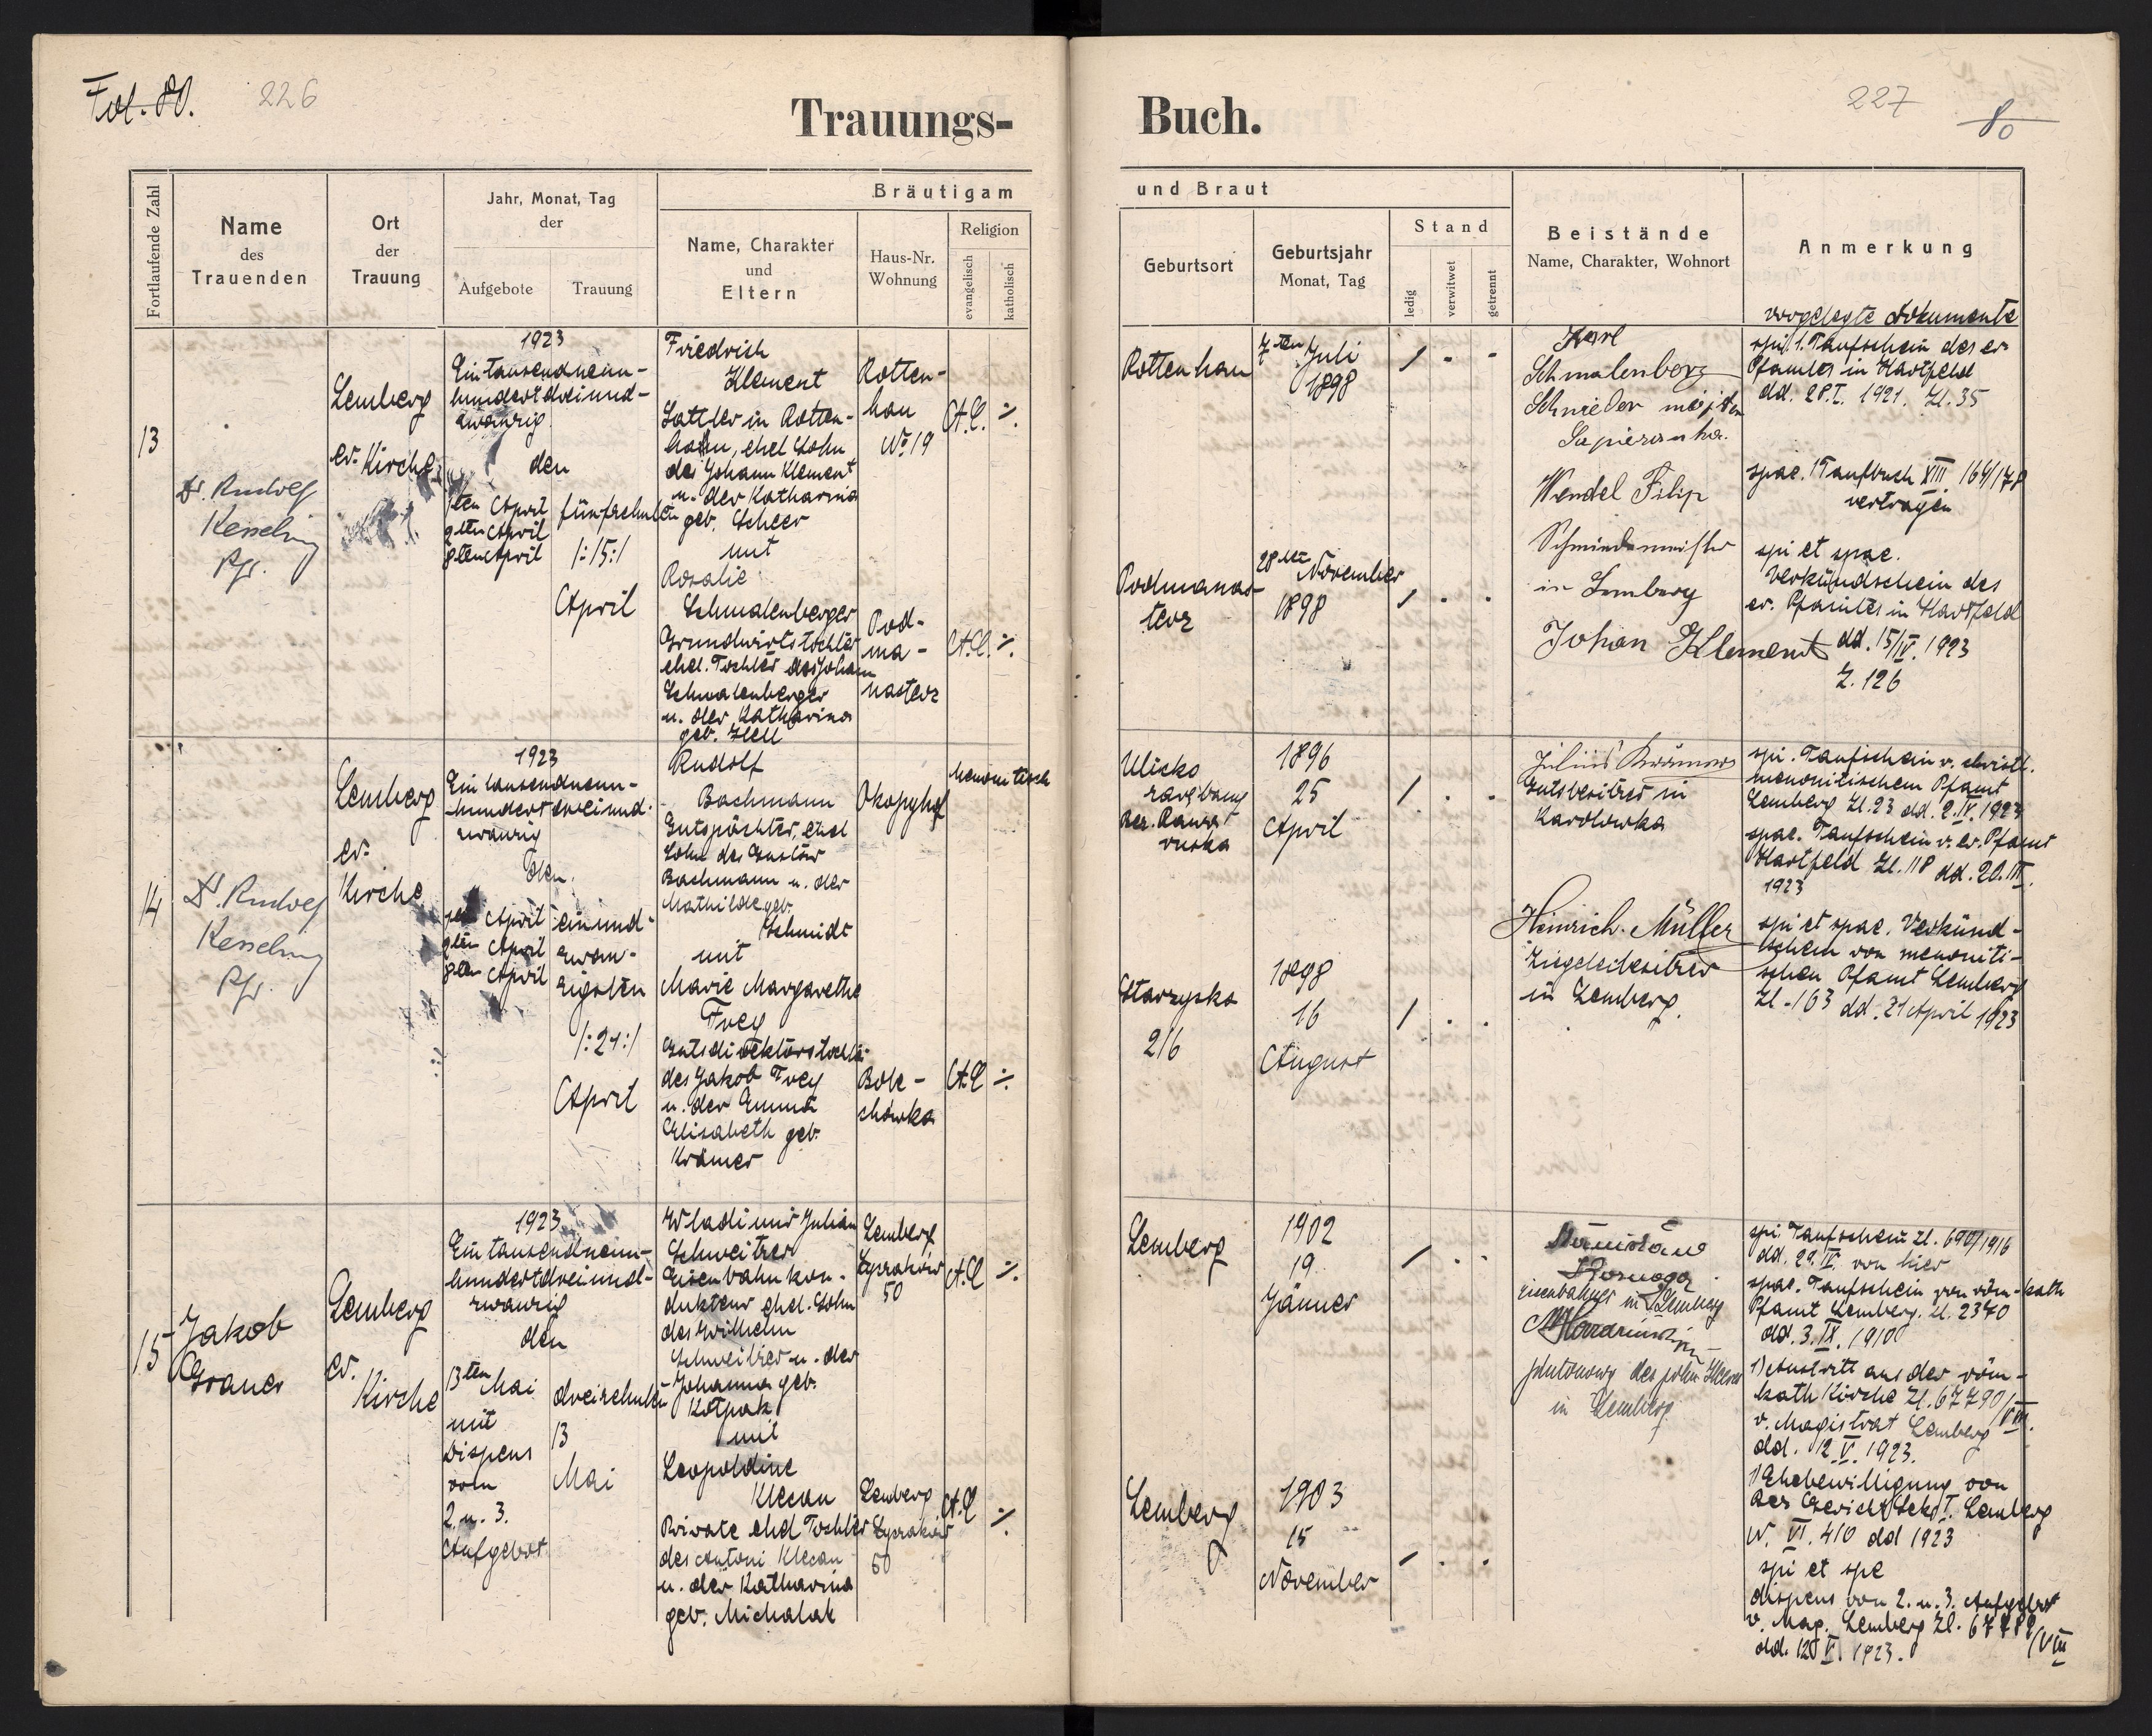 Fol. 80.
226
Trauungs-
Fortlaufende Zahl
Name
des
Trauenden
Ort
der
Trauung
Jahr, Monat, Tag
der
Aufgebote
Trauung
Bräutigam
Name, Charakter
und
Eltern
Haus-Nr.
Wohnung
Religion
evangelisch
katholisch
13
Dr. Rudolf
Kesselring
Pfr.
Lemberg
ev. Kirche
1923
Eintausendneun-
hundertdreiund-
zwanzig
den
1ten April
April
8ten April
fünfzehnten
/:15:/
April
Friedrich
Klement
Sattler in Rotten-
han, ehel Sohn
des Johann Klement
u. der Katharina
geb. Scheer
mit
Rosalie
Schmalenberger
Grundwirtstochter
ehel. Tochter des Johann
Schmalenberger
u. der Katharina
geb. Hell
Rotten-
han
No 19
A.C. ·/.
Pod-
ma-
nasterz
A.C. ·/.
14
Dr. Rudolf
Kesselring
Pfr.
Lemberg
ev.
Kirche
1923
Eintausendneun-
hundertdreiund-
zwanzig
den
April
April
April
einund-
zwan-
zigsten
/:21:/
April
Rudolf
Bachmann
Gutspächter, ehel
Sohn des Gustav
Bachmann u. der
Mathilde geb.
Schmidt
mit
Marie Margarethe
Frey
Gutsdirektorstochter
des Jakob Frey
u. der Emma
Elisabeth geb.
Krämer
Okopyhof
menonitisch
Bole-
chówka
A.C ·/.
15
Jakob
Graner
Lemberg
ev.
Kirche
1923
Eintausendneun-
hundertdreiund-
zwanzig
den
13ten
Mai
mit
Dispens
vom
2. u. 3.
Aufgebot
dreizehnten
13
Mai
Wladimir Julian
Schweitzer
Eisenbahnkon-
dukteur ehel. Sohn
des Wilhelm
Schweitzer u. der
Johanna geb.
mit
Leopoldine
Klecan
Private ehel Tochter
des Antoni Klecan
u. der Katharina
geb. Michalak
Lemberg
50
A.C ·/.
Lemberg
50
A.C ·/.
227
80
Buch.
und Braut
Geburtsort
Geburtsjahr
Monat, Tag
Stand
ledig
verwitwet
getrennt
Beistände
Name, Charakter, Wohnort
Anmerkung
Rottenhan
7ten Juli
1898
Karl
Schmalenberg
Schneider
Wendel Filip
Schmiedemeister
in Lemberg
Johan Klement
vorgelegte Dokumente
spi. 1. Taufschein des ev.
Pfamtes in Hartfeld
dd. 28.I. 1921. Zl. 35
spae. Taufbuch XIII 164/178
vertragen
spi et spae.
Verkündschein des
ev. Pfamtes in Hartfeld
dd. 15/IV. 1923
Z. 126
Podmanas-
terz
28ten November
1898
Ulicko
Bez. Rawa
ruska
1896
25
April
Julius Krämer
Gutsbesitzer in
Karolowka
Heinrich Müller
Ziegeleibesitzer
in Lemberg.
spi. Taufschein v. christl.
menonitischem Pfamt
Lemberg Zl. 23 dd. 2.IV. 1923
spae. Taufschein v. ev. Pfamt
Hartfeld Zl. 118 dd. 20.III.
1923
spi et spae. Verkünd-
schein von menoniti-
schen Pfamt Lemberg
Zl. 163 dd. 21 April 1923
Starzysko
216
1898
16
August
Lemberg
1902
19
Jänner
Stanisław
eisenbahner in Lemberg
in Lemberg
spi. Taufschein Zl. 690/1916
von hier
spae. Taufschein von röm-kath
Pfamt Lemberg. Zl. 2340
dd. 3.IX. 1910
1) Austritt aus der röm-
kath Kirche Zl. 67790/VIII.
v. Magistrat Lemberg
dd. 12 V. 1923.
1) Ehebewilligung von
Bez Gericht Sekt I. Lemberg
N. VI. 410 dd 1923
spi et spe
dispens von 2. u. 3. Aufgebot
v. Mag. Lemberg Zl. 67789/VIII
dd. 12 V. 1923.
Lemberg
1903
15
November